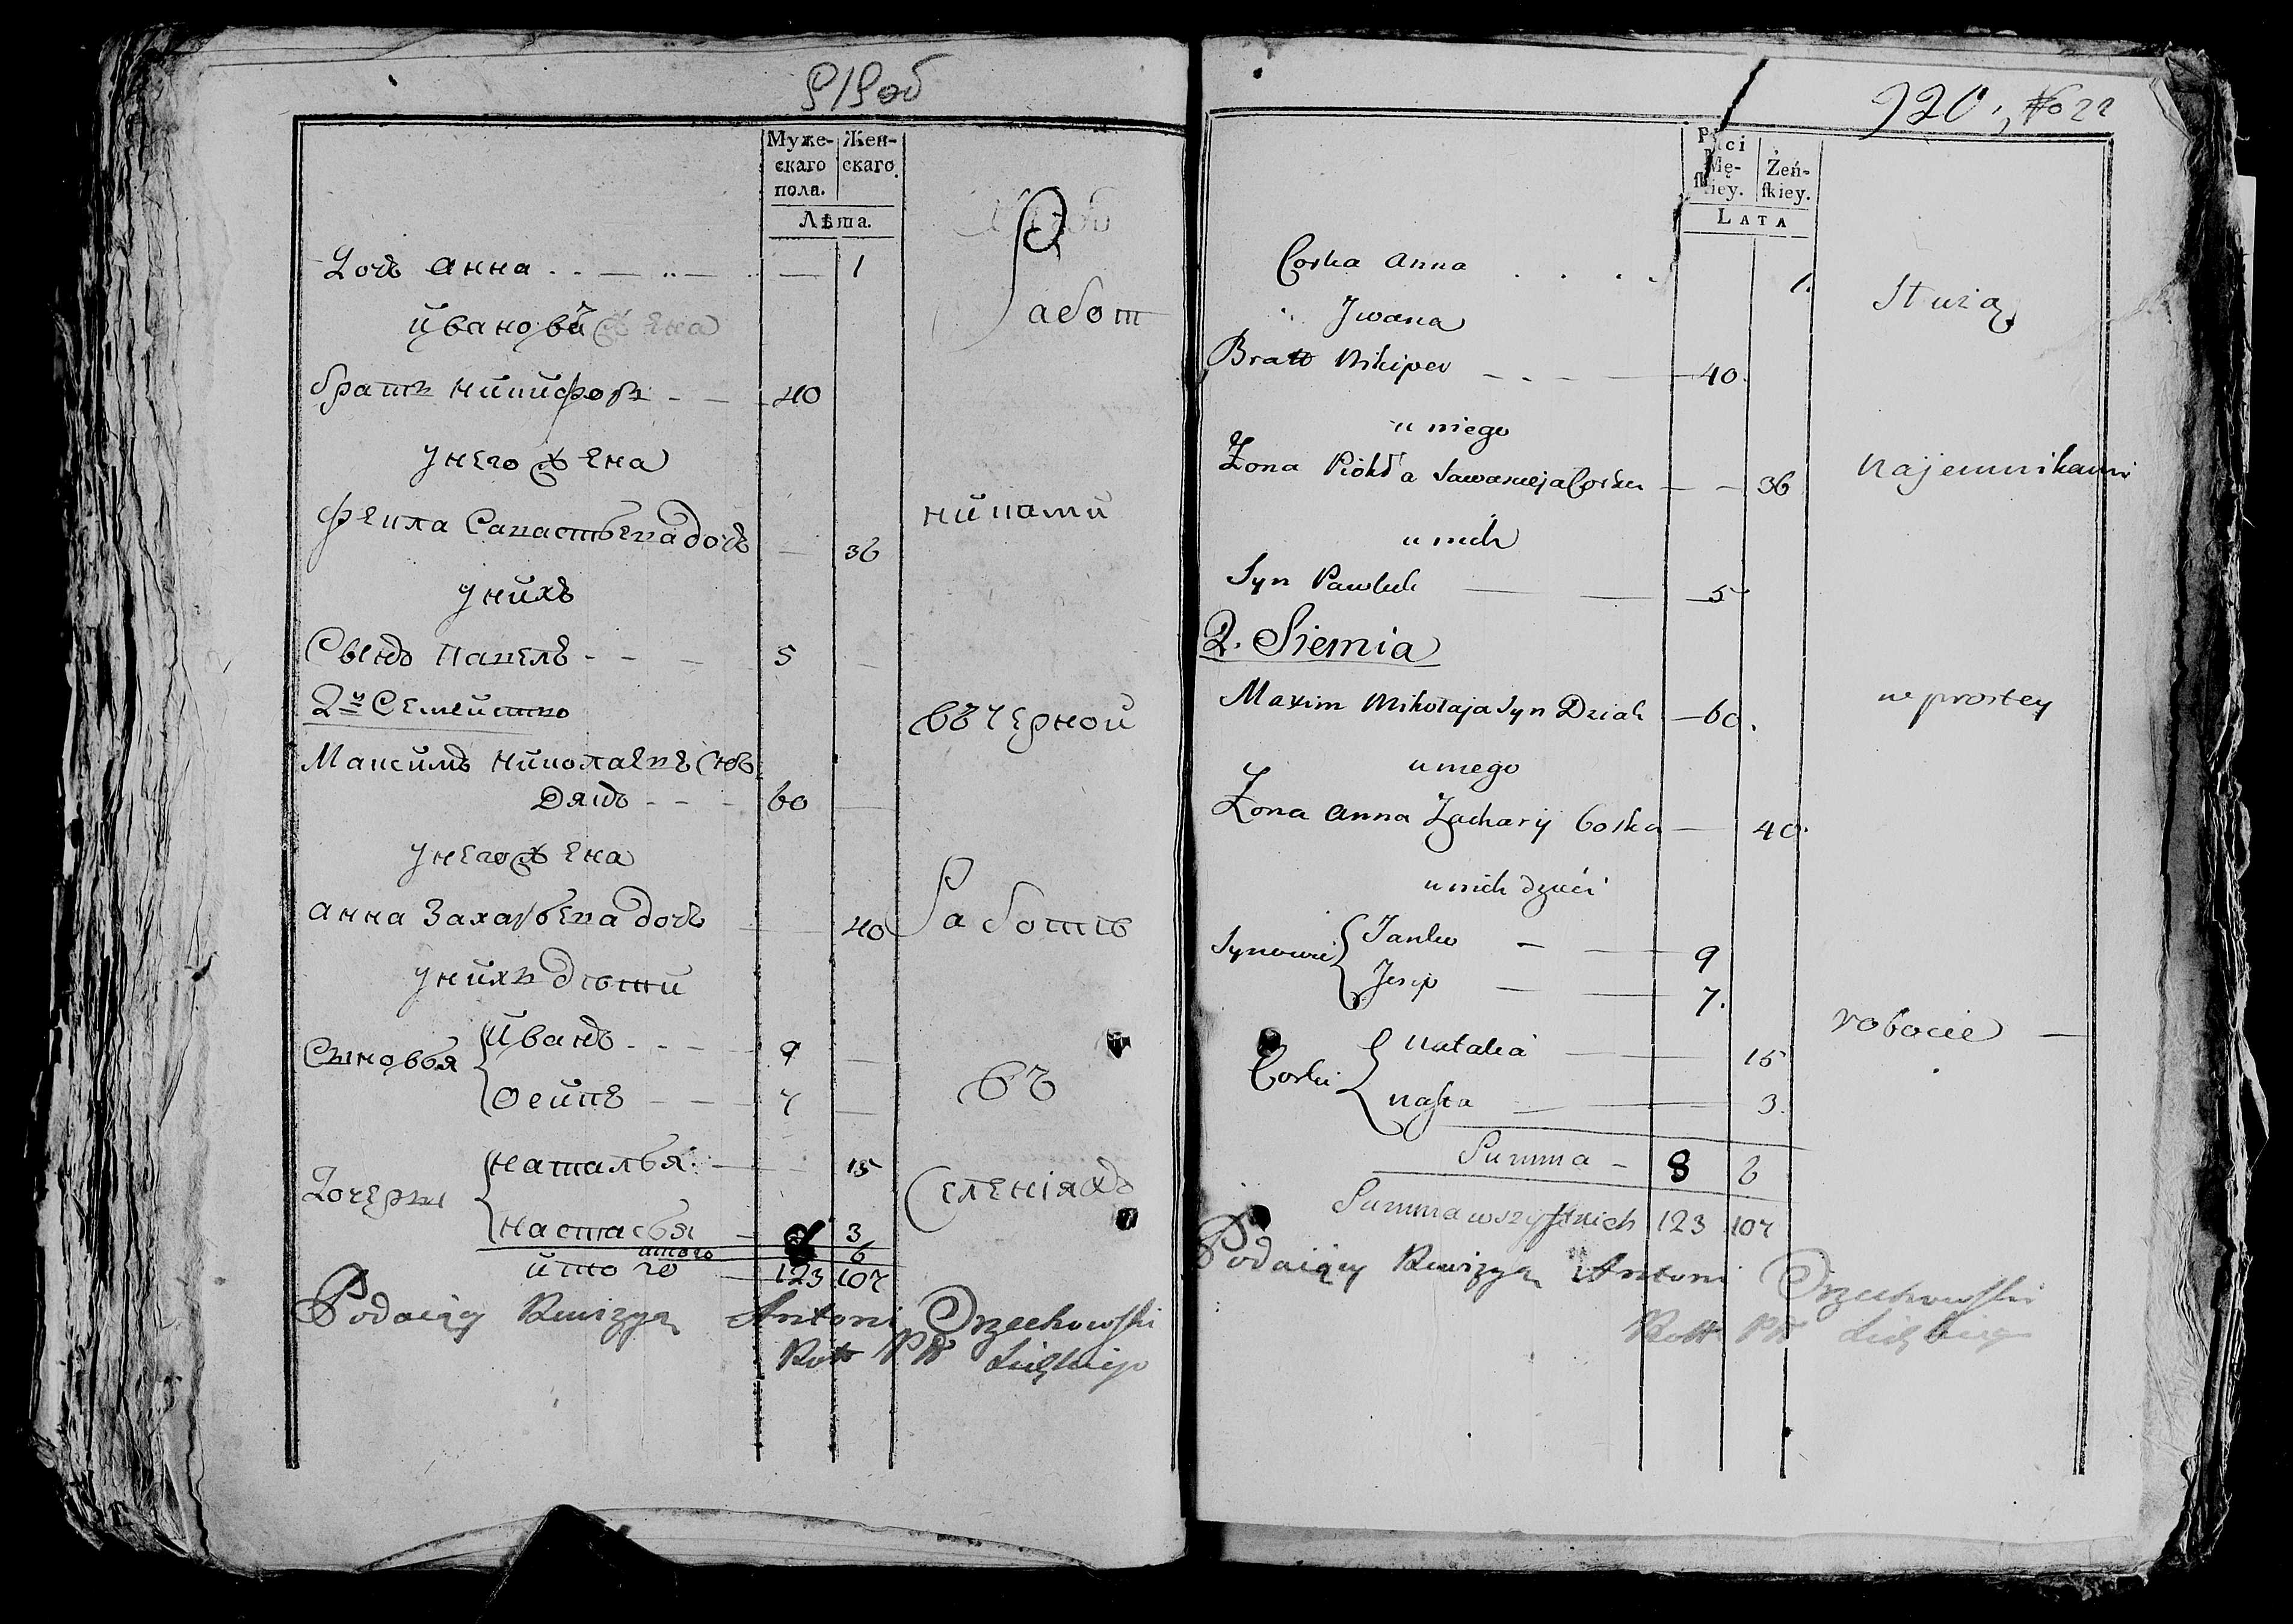 919 об
Муже-
скаго
пола.
Жен-
скаго.
Лѣта.
Дочь Анна 1
Ивановъ
братъ Никифоръ 40
у него жена
Фекла Савастьева дочь 36
у нихъ
Сынъ Павелъ 5
2е Семейство
Максимъ Николаевъ Сынъ
Дякъ 60
у него жена
Анна Захарьева дочь 40
у нихъ дѣти
Сыновья
Иванъ 9
Осипъ 7
Дочери
Наталья 15
Настасья 3
итого 8 6
итого 123 107
Работ
никами
въ черной
Работѣ
въ
Селеніяхъ
Podaiący Rewizyą Antoni Orzechowski
Rott PW
920, No 22
Płci
Mę-
skiey.
Żeń-
skiey.
LATA
Corka Anna 1.
Jwana
Bratt Nikiper 40.
u niego
Zona Corka 36
u nich
Syn Pawluk 5
2. Siemia
Maxim Mikołaja Syn Dziak 60.
u niego
Zona Anna Zachary Corka 40.
u nich dzieci
Synowie
Janko 9
Jesip 7.
Corki
Natalia 15
Nasta 3.
Summa 8 6
Summa wszystkich 123 107
Służą
najemnikami
w prostey
robocie
Podaiący Rewizyą Antoni Orzechowski
Rott PW